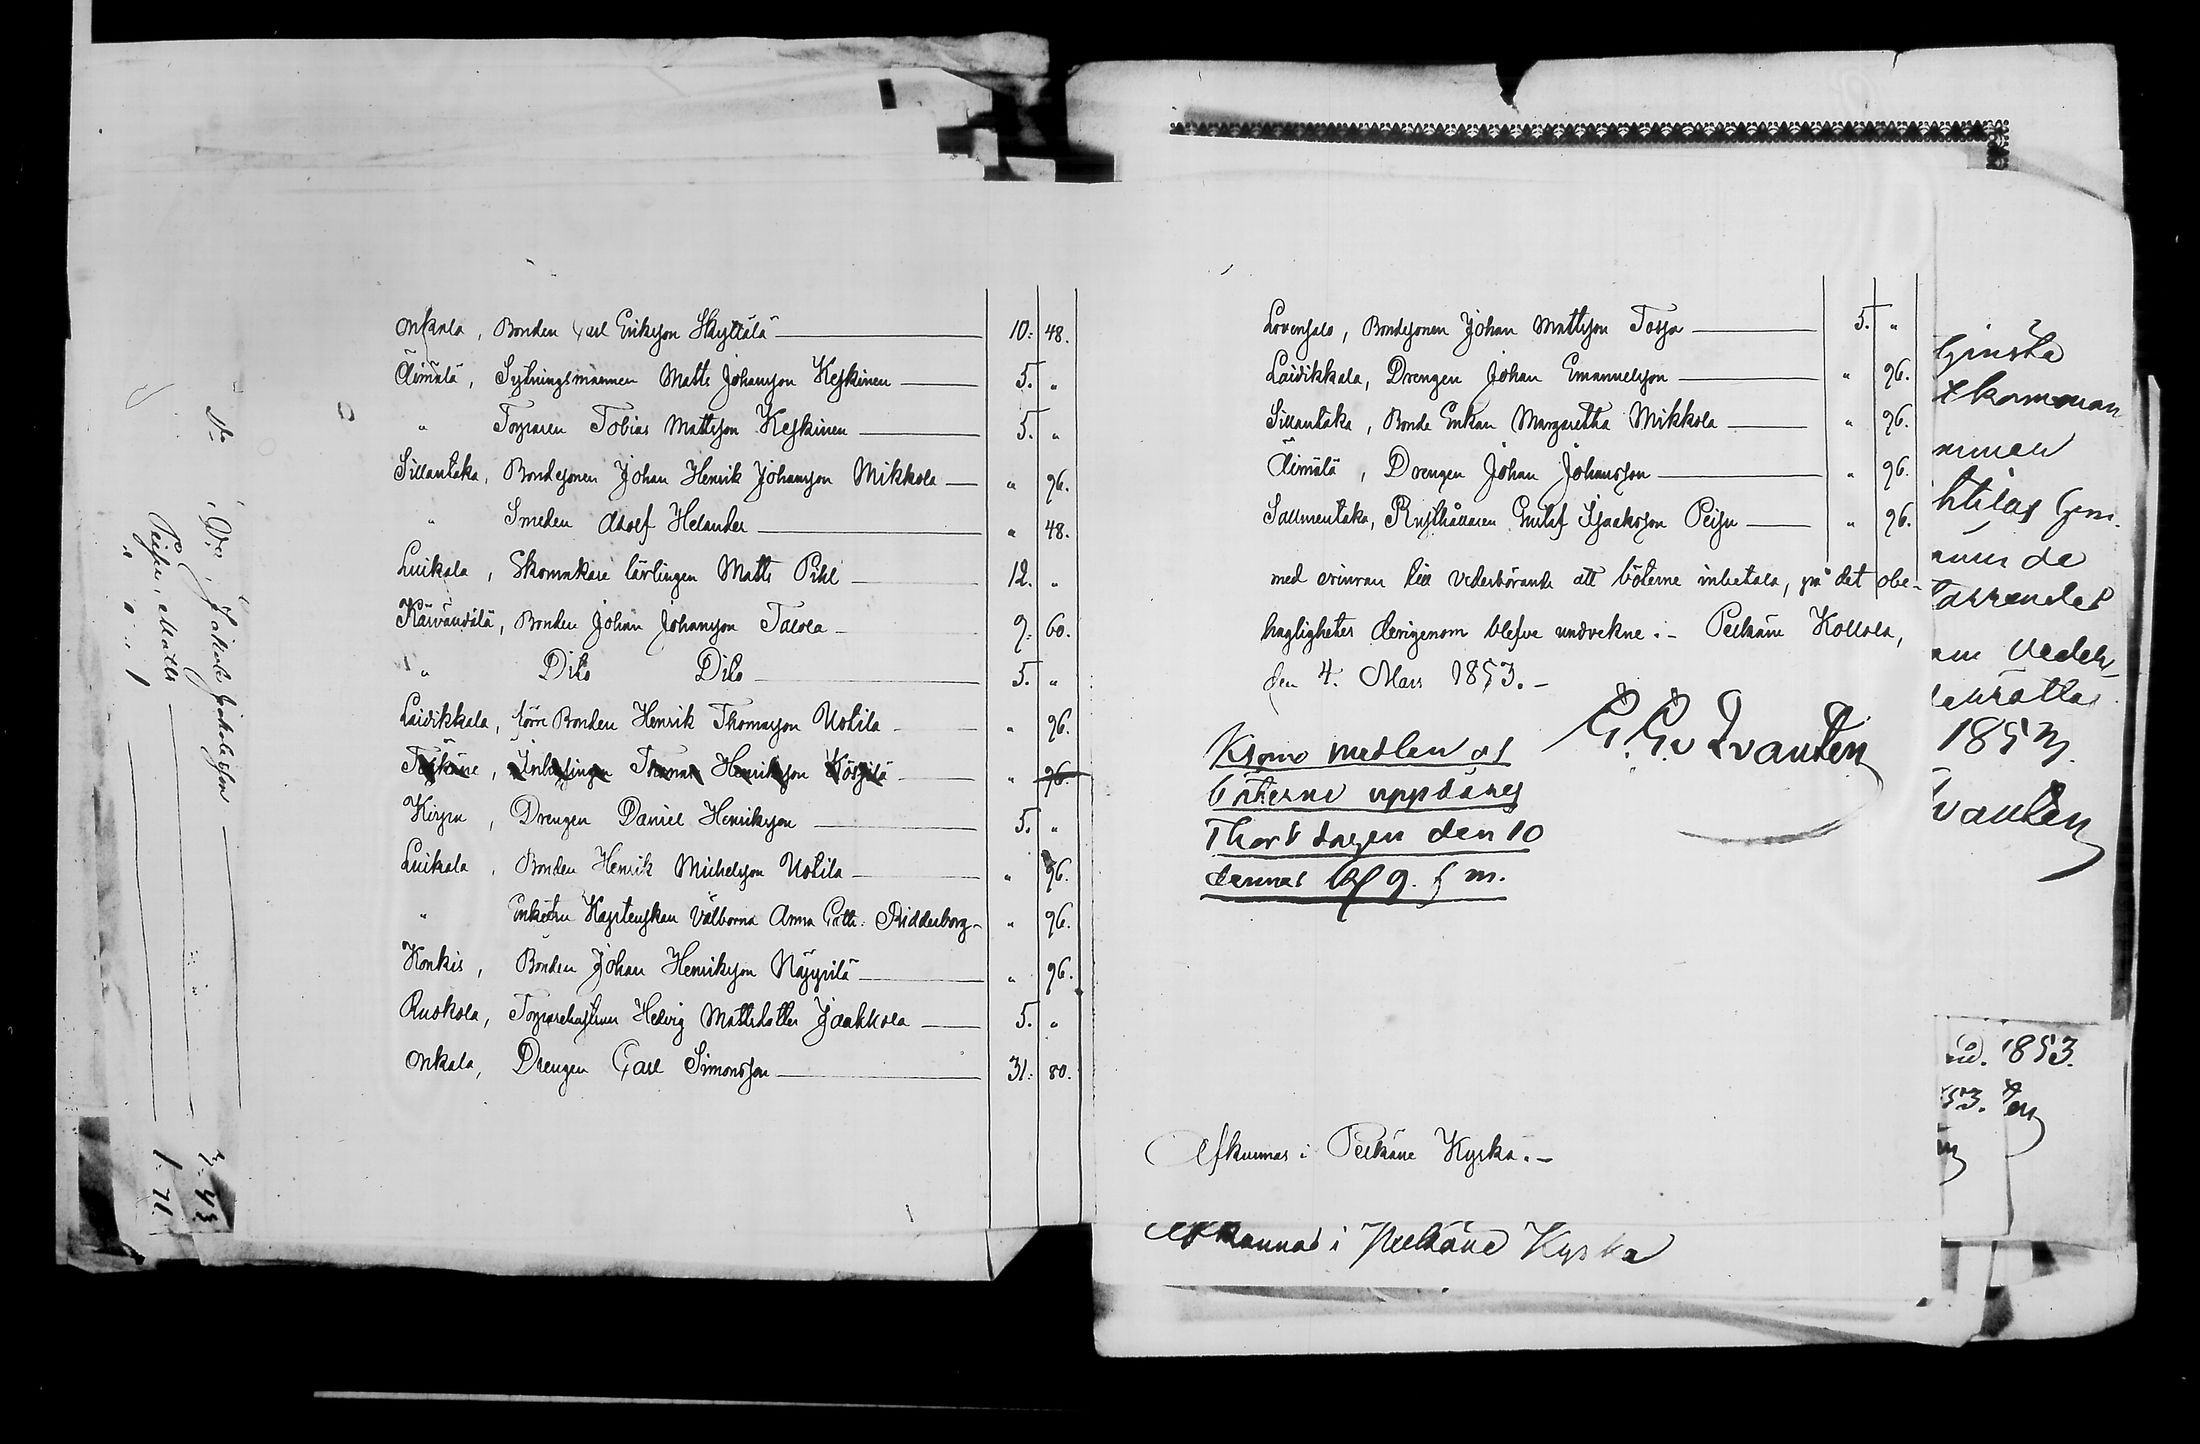 Onkala, Bonden Carl Eriksson Skyttälä 10. 48.
Äimälä, Sytningsmannen Matts Johansson Keskinen 5. "
" Torparen Tobias Mattsson Keskinen 5. "
Sillantaka, Bondesonen Johan Henrik Johansson Mikkola " 96.
" Smeden Adolf Helander " 48.
Luikala, Skomakare lärlingen Matts Pihl 12. "
Kärvändilä, Bonden Johan Johansson Talola 9. 60.
" Dito Dito 5. "
Laidikkala, förre Bonden Henrik Thomasson Uotila " 96.
Inhysingen Thomas Henriksson " 96.
, Drengen Daniel Henriksson 5. "
Luikala, Bonden Henrik Michelsson Uotila " 96.
" Enkefru Kaptenskan Välborna Anna Cath: Ridderborg " 96.
Konkis, Bonden Johan Henriksson Näppilä " 96.
Ruokola, Torparehustrun Hedvig Mattsdotter Jaakkola 5. "
Onkala, Drengen Carl Simonsson 31. 80.
D:o, Jakob Jakobsson 3. 43
Matts 1. 71.
" " " 1
Lovensalo, Bondesonen Johan Mattsson Tossa 5. "
Laidikkala, Drengen Johan Emanuelsson " 96.
Sillantaka, Bonde Enkan Margaretha Mikkola " 96.
Äimälä, Drengen Johan Johansson " 96.
Sallmentaka, Rusthållaren Gustaf Isaaksson Peisu " 96.
med erinran till vederbörande att böterne inbetala, på det obe-
hagligheter derigenom blefve undvekne.- Pelkäne Kollola,
den 4. Mars 1853.-
E. G. v Qvanten
Krono medlen af
böterne uppbäres
Thorsdagen den 10
dennes kl 9. f m.
Afkunnas i Pelkäne Kyrka.-
Afkunnas i Pelkäne Kyrka
1853.
vanten
1853.
53.